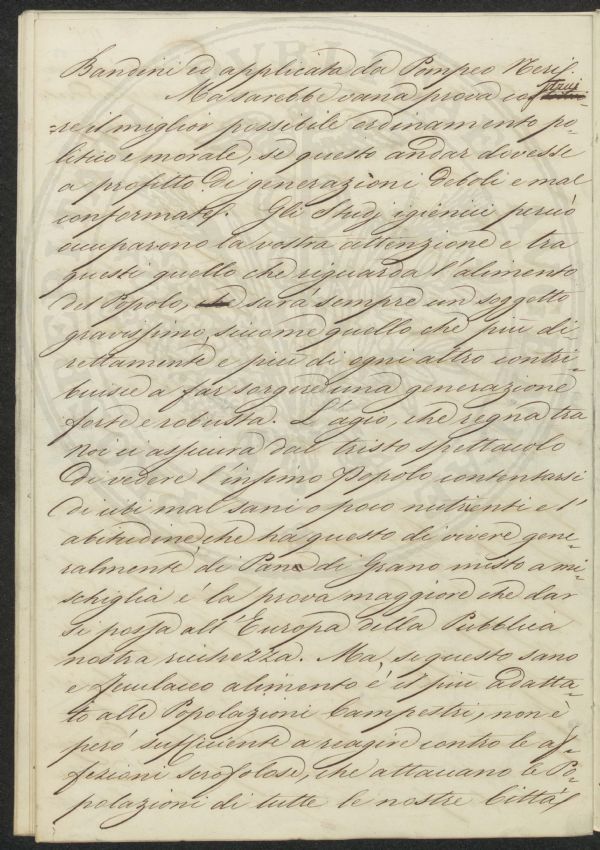 Bandini ed applicata da Pompeo Neri.
Ma sarebbe vana prova costrui
re il miglior possibile ordinamento po-
litico e morale, se questo andar dovesse
a profitto di generazioni deboli e mal
conformate. Gli Studj igienici perciò
occuparono la vostra attenzione e tra
questi quello che riguarda l'alimento
del Popolo, sarà sempre un soggetto
gravissimo, siccome quello che più di-
rettamente e più di ogni altro contri-
buisce a far sorgere una generazione
forte e robusta. L'agio, che regna tra
Noi ci assicura dal tristo spettacolo
di vedere l'infimo Popolo contentarsi
di cibi mal sani o poco nutrienti e l'
abitudine che ha questo di vivere gene-
ralmente di Pane di Grano misto a mi-
schiglia è la prova maggiore che dar
si possa all'Europa della Pubblica
nostra ricchezza. Ma, se questo sano
e feculaceo alimento è il più adatta-
to alle Popolazioni Campestri, non è
però sufficiente a reagire contro le af-
fezioni scrofolose, che attaccano le Po-
polazioni di tutte le nostre Città